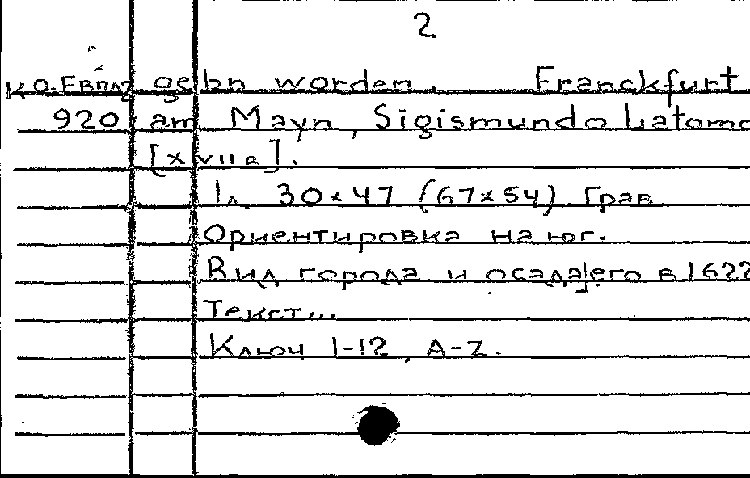 2
К.О.Евпл gebn worden. Franckfurt
920 am Mayn, Sigismundo Latomo
[XVII в].
1л. 30×47 (67×54) Грав
Ориентировка на юг.
Вид города и осад его в 1622
Текст...
Ключ 1-12, A-Z.